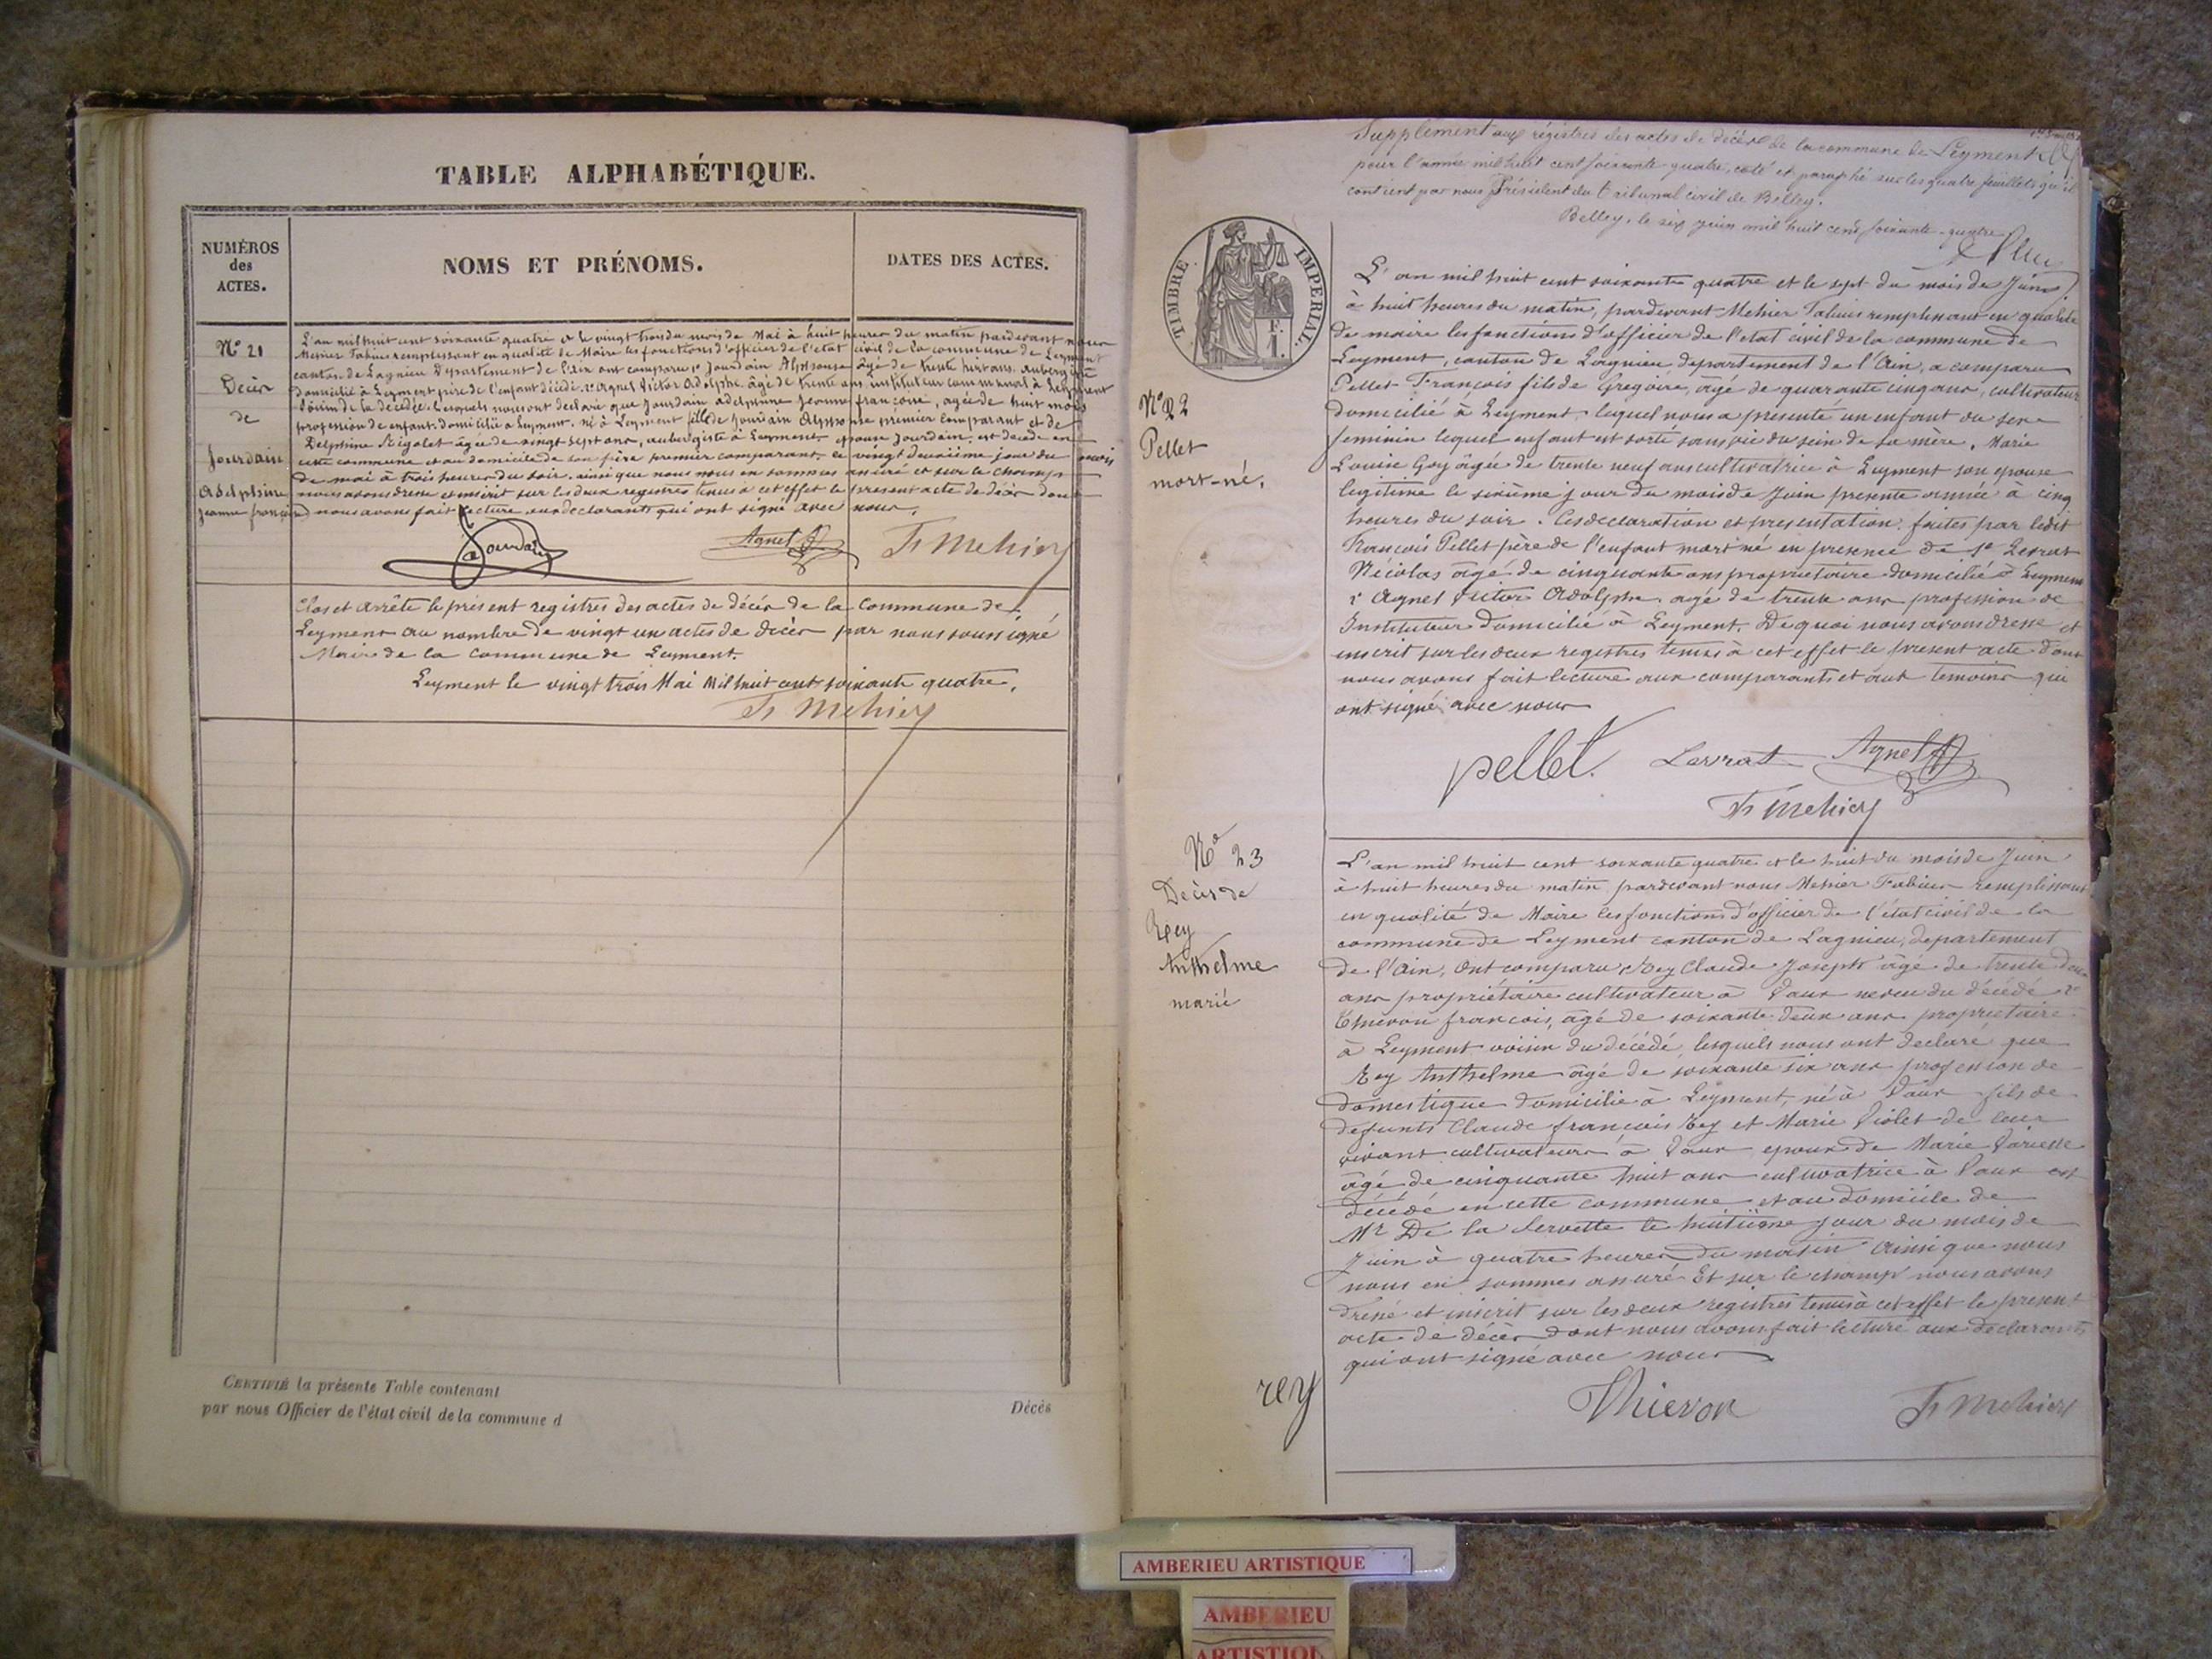 TABLE ALPHABÉTIQUE.
NUMÉROS
des
ACTES.
NOMS ET PRÉNOMS.
DATES DES ACTES.
N° 21
Décès
de
Jourdain
Adelphine
jeanne françoise
L'an mil huit cent soixante quatre et le vingt trois du mois de Mai à huit heures du matin pardevant nous
Mehier Fabius remplissant en qualité de Maire les fonctions d'officier de l'état civil de la commune de Leyment
canton de Lagnieu Département de l'Ain ont comparu 1° Jourdain Alphonse âgé de trente huit ans, aubergiste
domicilié à Leyment père de l'enfant décédé. 2° Agnel Victor Adolphe âgé de trente ans instituteur communal à Leyment
voisin de la décédée. lesquels nous ont déclaré que Jourdain adelphine jeanne françoise, agée de huit mois
profession de enfant. domiciliée à Leyment. né à Leyment fille de Jourdain Alphonse premier comparant et de
Delphine Rigolet âgée de vingt sept ans, aubergiste à Leyment épouse Jourdain. est décédé en
cette commune et au domicile de son père premier comparant, le vingt deuxième jour du mois
de mai à trois heures du soir. ainsi que nous nous en sommes assuré et sur le champ
nous avons dressé et inscrit sur les deux registres tenus à cet effet le présent acte de décès dont
nous avons fait lecture aux déclarants qui ont signé avec nous.
Jourdain Agnel Fs Mehier
Clos et arrêté le présent registres des actes de décès de la commune de
Leyment au nombre de vingt un actes de décès par nous soussigné
Maire de la commune de Leyment.
Leyment le vingt trois Mai Mil huit cent soixante quatre.
Fs Mehier
CERTIFIÉ la présente Table contenant
Décès
par nous Officier de l'état civil de la commune d
Supplément aux régistres des actes de décès de la commune de Leyment
pour l'année mil huit cent soixante-quatre, coté et paraphé sur les quatre feuillets qu'il
contient par nous Président du tribunal civil de Belley.
Belley, le six juin mil huit cent soixante-quatre
TIMBRE IMPERIAL.
N° 22
Pellet
mort-né.
L'an mil huit cent soixante quatre et le sept du mois de Juin
à huit heures du matin, pardevant Mehier Fabius remplissant en qualité
de maire les fonctions d'officier de l'état civil de la commune de
Leyment, canton de Lagnieu departement de l'Ain, a comparu
Pellet François fils de Gregoire, âgé de quarante cinq ans, cultivateur
domicilié à Leyment. lequel nous a présenté un enfant du sexe
feminin lequel enfant est sorté sans vie du sein de sa mère, Marie
Louise Goy âgée de trente neuf ans cultivatrice à Leyment son epouse
legitime le sixième jour du mois de Juin presente année à cinq
heures du soir. Les declaration et presentation faites par ledit
François Pellet père de l'enfant mort né en presence de 1° Levrat
Nicolas âgé de cinquante ans proprietaire domicilié à Leyment
2° Agnel Victor Adolphe agé de trente ans profession de
Instituteur domicilié à Leyment. De quoi nous avons dressé et
inscrit sur les deux registres tenus à cet effet le present acte dont
nous avons fait lecture aux comparants et aux temoins qui
ont signé avec nous
pellet. Levrat Agnel
Fs Mehier
N° 23
Décès de
Rey
Anthelme
marié
L'an mil huit cent soixante quatre et le huit du mois de Juin
à huit heures du matin pardevant nous Mehier Fabius remplissant
en qualité de Maire les fonctions d'officier de l'état civil de la
commune de Leyment canton de Lagnieu, departement
de l'Ain, Ont comparu Rey Claude Joseph âgé de trente
ans propriétaire cultivateur à Vaux neveu du décédé 2°
Thievon françois, agé de soixante deux ans proprietaire
à Leyment voisin du décédé, lesquels nous ont declaré que
Rey Anthelme âgé de soixante six ans profession de
domestique domicilié à Leyment, né à Vaux fils de
defunts Claude françois Rey et Marie Violet de leur
vivant cultivateurs à Vaux epoux de Marie
âgé de cinquante huit ans cultivatrice à Vaux est
décédé en cette commune et au domicile de
Mr De la Servette le huitième jour du mois de
Juin à quatre heures du matin ainsi que nous
nous en sommes assuré Et sur le champ nous avons
dressé et inscrit sur les deux registres tenus à cet effet le present
acte de décès dont nous avons fait lecture aux declarants
qui ont signé avec nous
rey Thievon Fs Mehier
AMBERIEU ARTISTIQUE
AMBERIEU
ARTISTIQUE